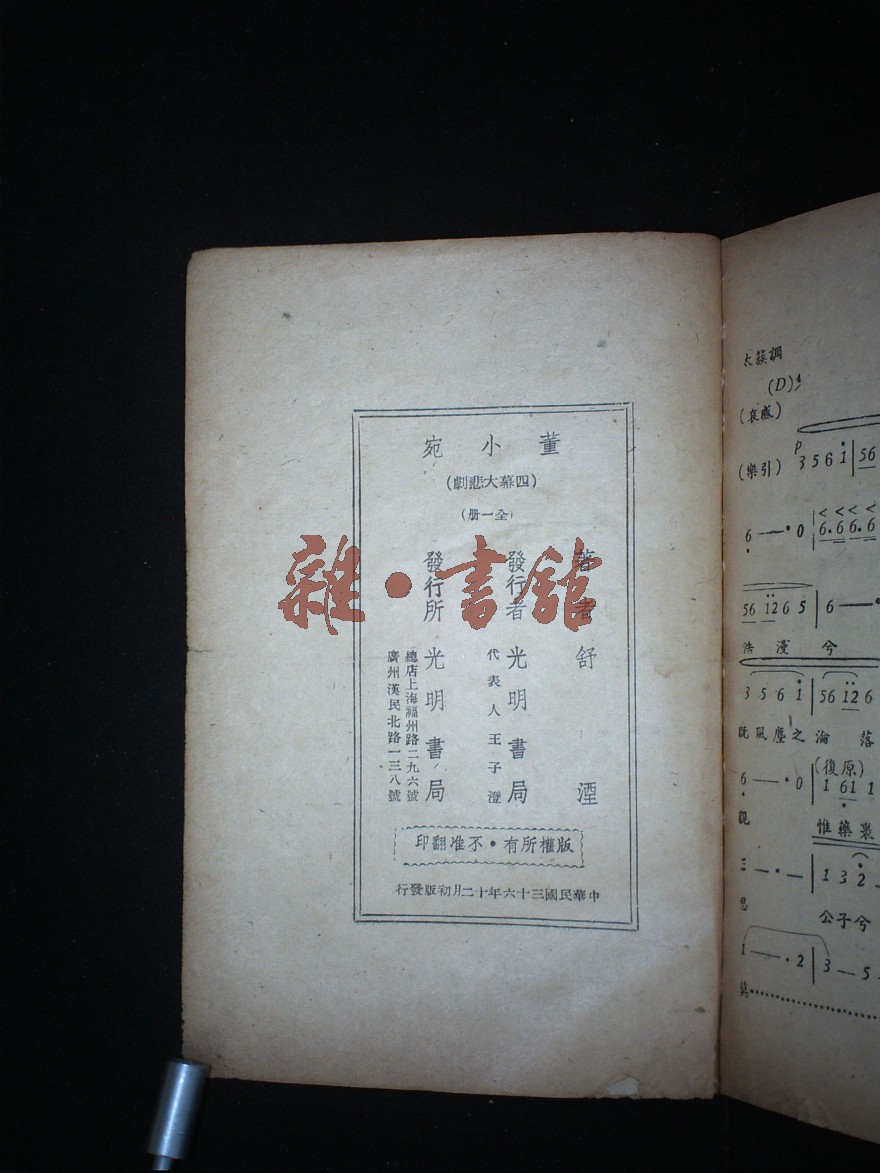 董小宛
(四幕大悲劇)
(全一册)
著者 舒湮
發行者 光明書局
代表人王子澄
發行所 光明書局
總店上海福州路二九六號
廣州漢民北路一三八號
版權所有·不准翻印
中華民國三十六年十二月初版發行
雜·書館
太簇調
(D)
(哀感)
(樂引) 3 5 6 1 | 56
6 — · 0 | 6. 6 6. 6
56 12 6 5 | 6 —
浩漫兮
3 5 6 1 | 56 12 6
既風塵之淪落
(復原)
6 — · 0 | 1 61 1
觀 惟藥裹
三 — · — | 1 3 2
思 公子兮
1 — · 2 | 3 — 5
莫